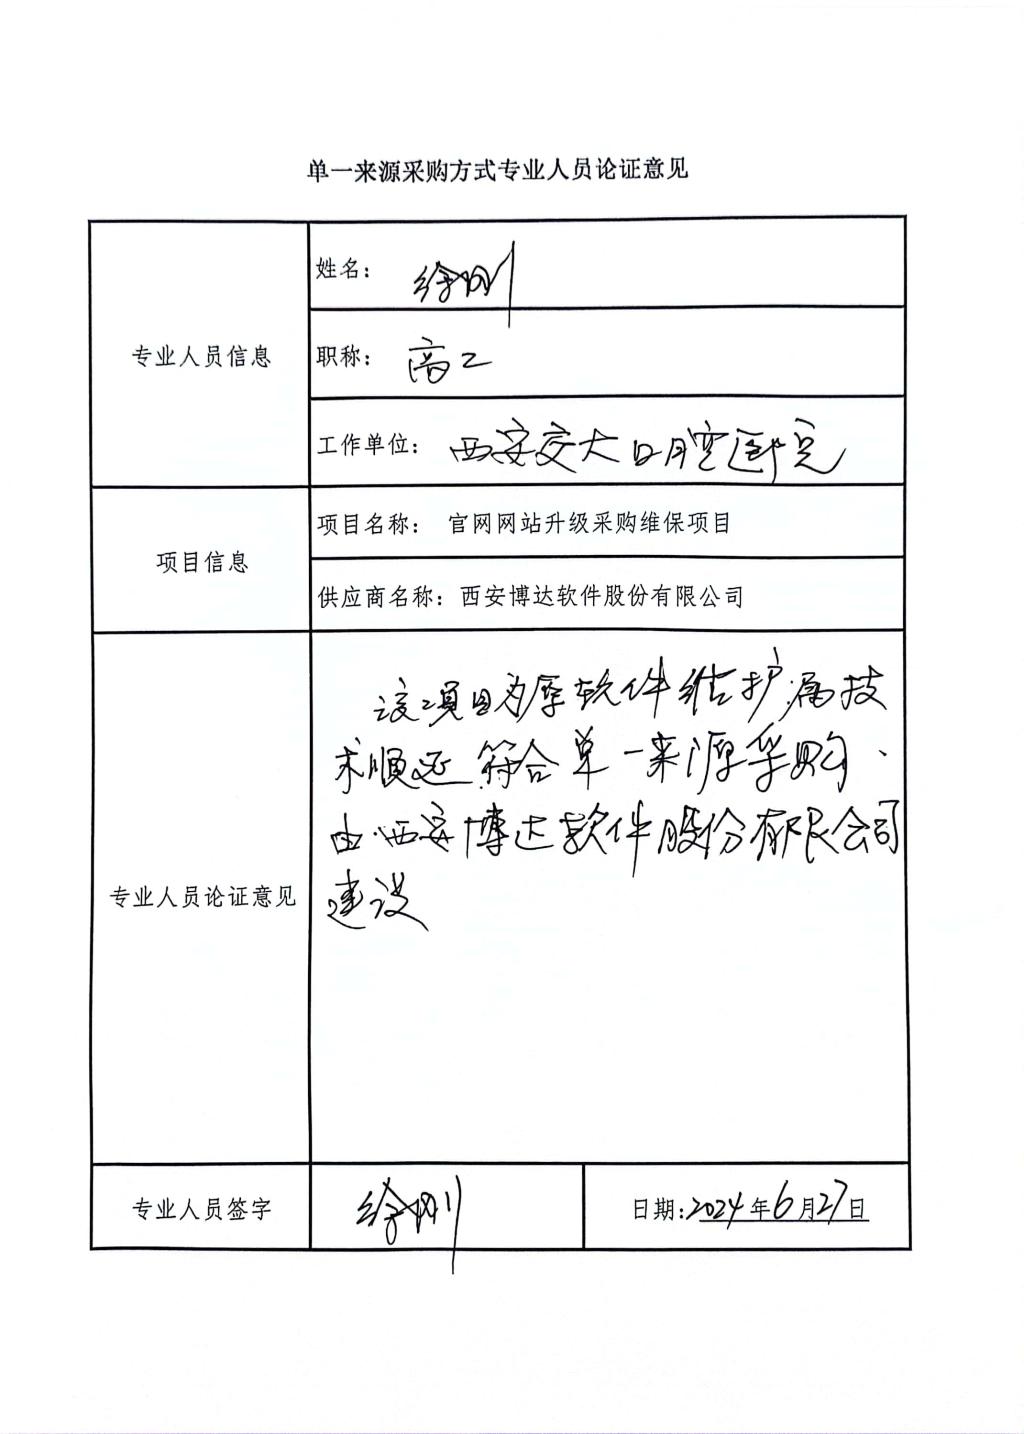 单一来源采购方式专业人员论证意见
专业人员信息
姓名： 徐刚
职称： 高工
工作单位： 西安交大口腔医院
项目信息
项目名称： 官网网站升级采购维保项目
供应商名称：西安博达软件股份有限公司
专业人员论证意见
该项目为原软件维护，属技
术顺延 符合单一来源采购，
由西安博达软件股份有限公司
建设
专业人员签字
徐刚
日期:2024年6月27日